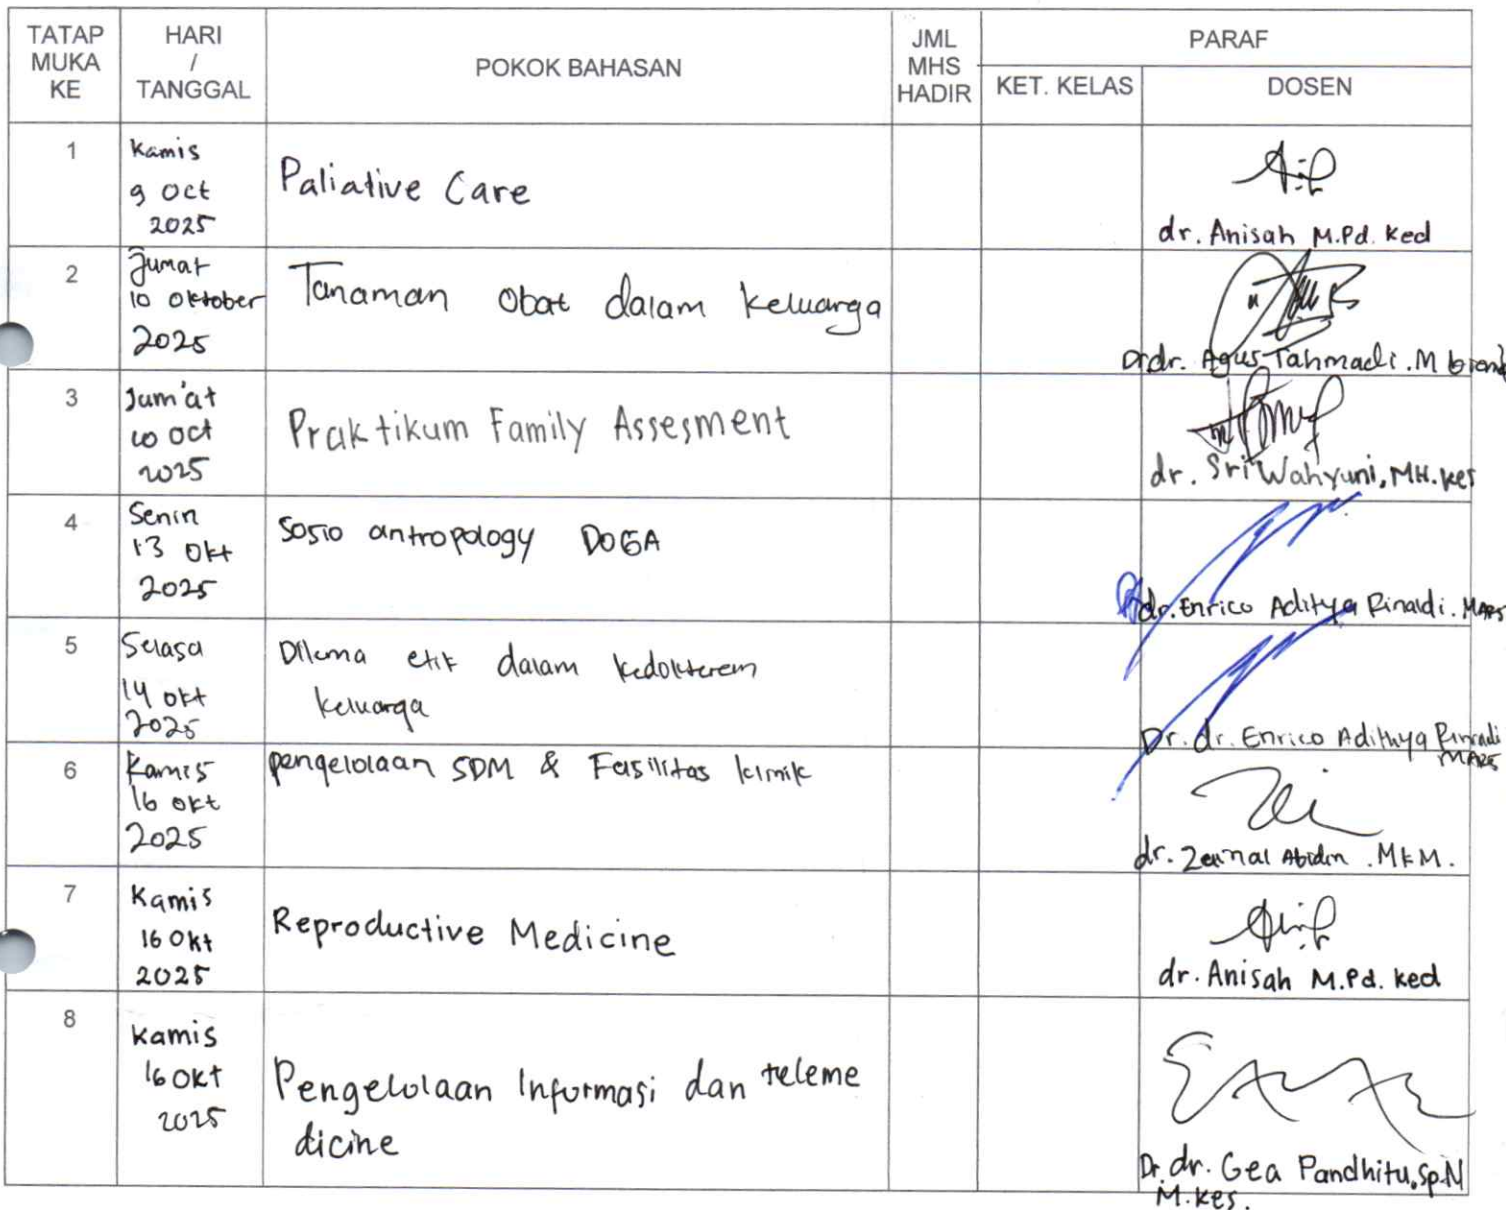 TATAP MUKA KE
HARI / TANGGAL
POKOK BAHASAN
JML MHS HADIR
PARAF
KET. KELAS
DOSEN
1
Kamis
9 Oct
2025
Paliative Care
dr. Anisah M.Pd. Ked
2
Jumat
10 Oktober
2025
Tanaman Obat dalam keluarga
Drdr. Agus Tahmadi . M
3
Jum'at
10 Oct
2025
Praktikum Family Assesment
dr. Sri Wahyuni, MH.Kes
4
Senin
13 Okt
2025
Sosio antropology DOGA
dr. Enrico Aditya Rinaldi. MARS
5
Selasa
14 Okt
2025
Dilema etik dalam kedokteran
keluarga
Dr. dr. Enrico Adithya Rinaldi
MARS
6
Kamis
16 Okt
2025
pengelolaan SDM & Fasilitas klinik
dr. Zainal Abidin . MKM.
7
Kamis
16 Okt
2025
Reproductive Medicine
dr. Anisah M.Pd. Ked
8
Kamis
16 Okt
2025
Pengelolaan Informasi dan teleme
dicine
Dr. dr. Gea Pandhitu, Sp.N
M.Kes.